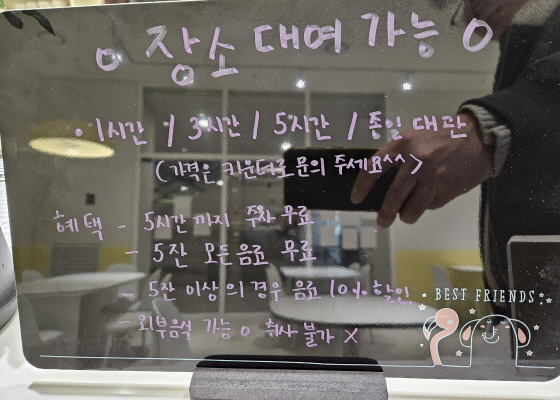 o 장소 대여 가능 o
• 1시간 / 3시간 / 5시간 / 종일 대관
(가격은 카운터로 문의 주세요^^)
혜택 - 5시간까지 주차 무료
- 5잔 모든음료 무료
- 5잔 이상의 경우 음료 10% 할인
- 외부음식 가능 o 취사 불가 x
BEST FRIENDS